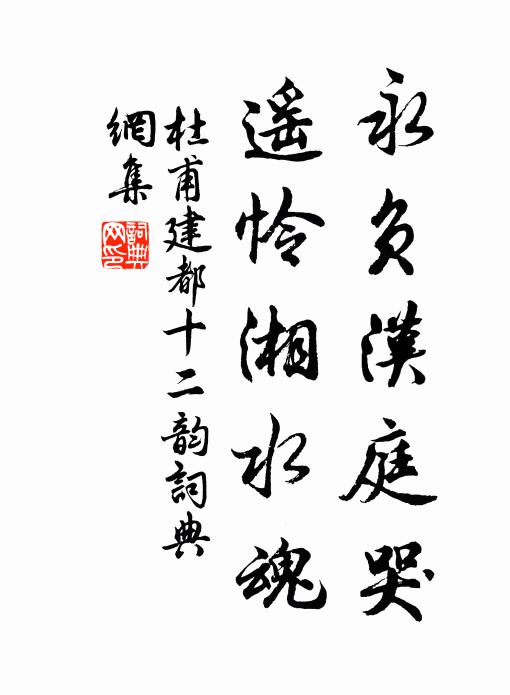 永負漢庭哭
遥怜湘水魂
杜甫建都十二韵詞典
網集
詞典网印